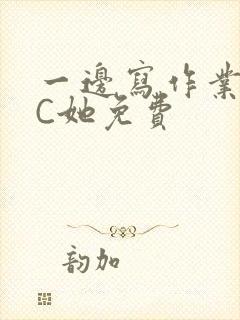 一邊寫作業
C她免費
韵加